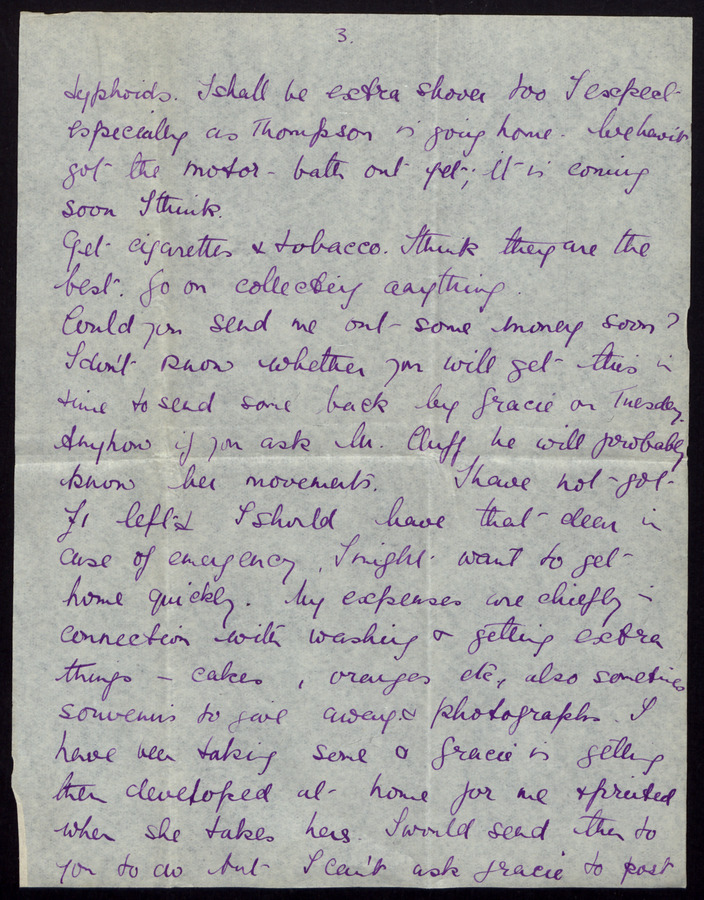 3.
typhoids. I shall be extra shover too I expect
especially as Thompson is going home. We havn't
got the motor-bath out yet; it is coming
soon I think.
Get cigarettes & tobacco. I think they are the
best. Go on collecting anything.
Could you send me out some money soon?
I don't know whether you will get this in
time to send some back by Gracie on Tuesday.
Anyhow if you ask Mr. Cluff he will probably
know her movements. I have not got
£1 left & I should have that clear in
case of emergency, I might want to get
home quickly. My expenses are chiefly in
connection with washing & getting extra
things - cakes, oranges etc, also sometimes
souvenirs to give away & photographs. I
have been taking some & Gracie is getting
them developed at home for me & printed
when she takes hers. I would send them to
you to do but I can't ask Gracie to post